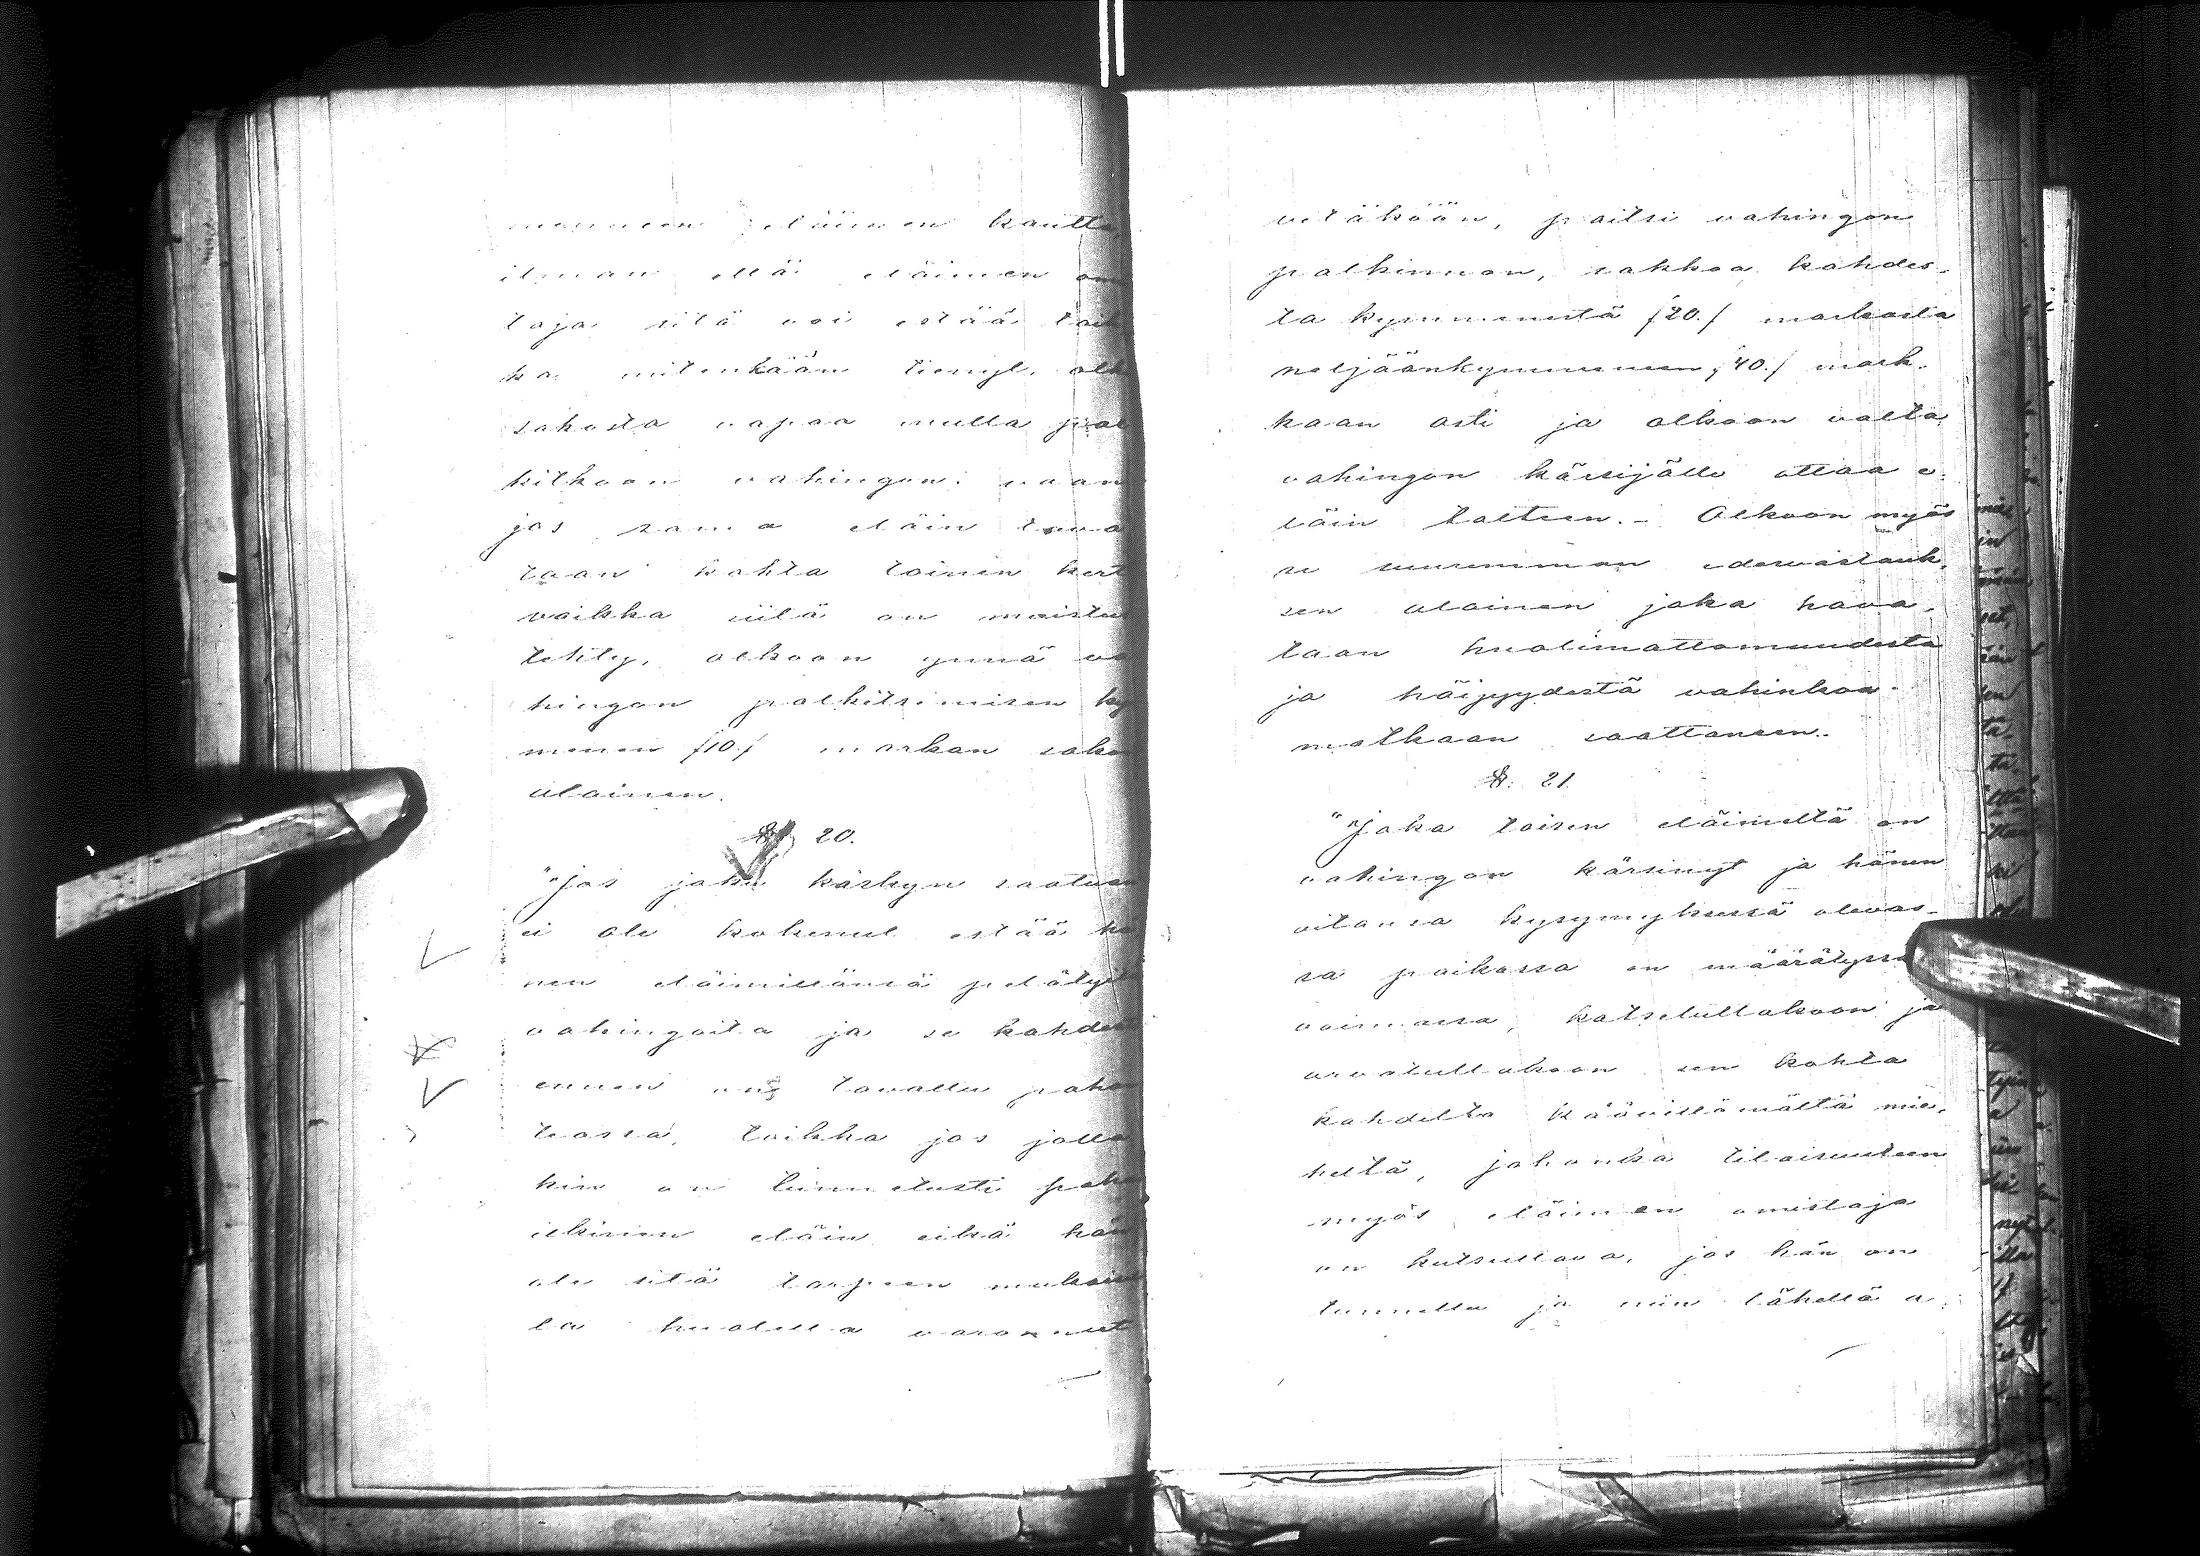 menneen eläimen kautta,
ilman että eläimen om
taja sitä voi estää taik
ka mitenkään tiennyt, olk
sakosta vapaa mutta pal
kitkoon vahingon: vaan
jos sama eläin tava
taan kohta toinen kert
vaikka siitä on muistu
tettu, olkoon ynnä va
hingon palkitsemisen ky
menen /10./ markan sako
alainen.
§ 20.
"Jos joku käskyn saatuaan
ei ole kokenut estää hä
nen eläimillänsä pelätyt
vahingoita ja se kahdest
ennen on tavattu paha
teossa, taikka jos jolla
kin on tunnetusti paha
ilkinen eläin eikä hän
ole sitä tarpeen mukaise
la huolella varonnut
vetäköön, paitsi vahingon
palkinnon, sakkoa kahdes-
ta kymmenestä /20./ markasta
neljäänkymmeneen /40./ mark-
kaan asti ja olkoon valta
vahingon kärsijälle ottaa e-
läin talteen. - Olkoon myös
se suuremman edesvastauk-
sen alainen joka hava-
taan huolimattomuudesta
ja häijyydestä vahinkoa
matkaan saattaneen.
§. 21.
"Joka toisen eläimeltä on
vahingon kärsinyt ja hänen
aitansa kysymyksessä olevas-
sa paikassa on määrätyssä
voimassa, katseluttakoon ja
arvatuttakoon sen kohta
kahdelta jäävittömältä mie-
heltä, johonka tilaisuuteen
myös eläimen omistaja
on kutsuttava, jos hän on
tunnettu ja niin lähellä a-